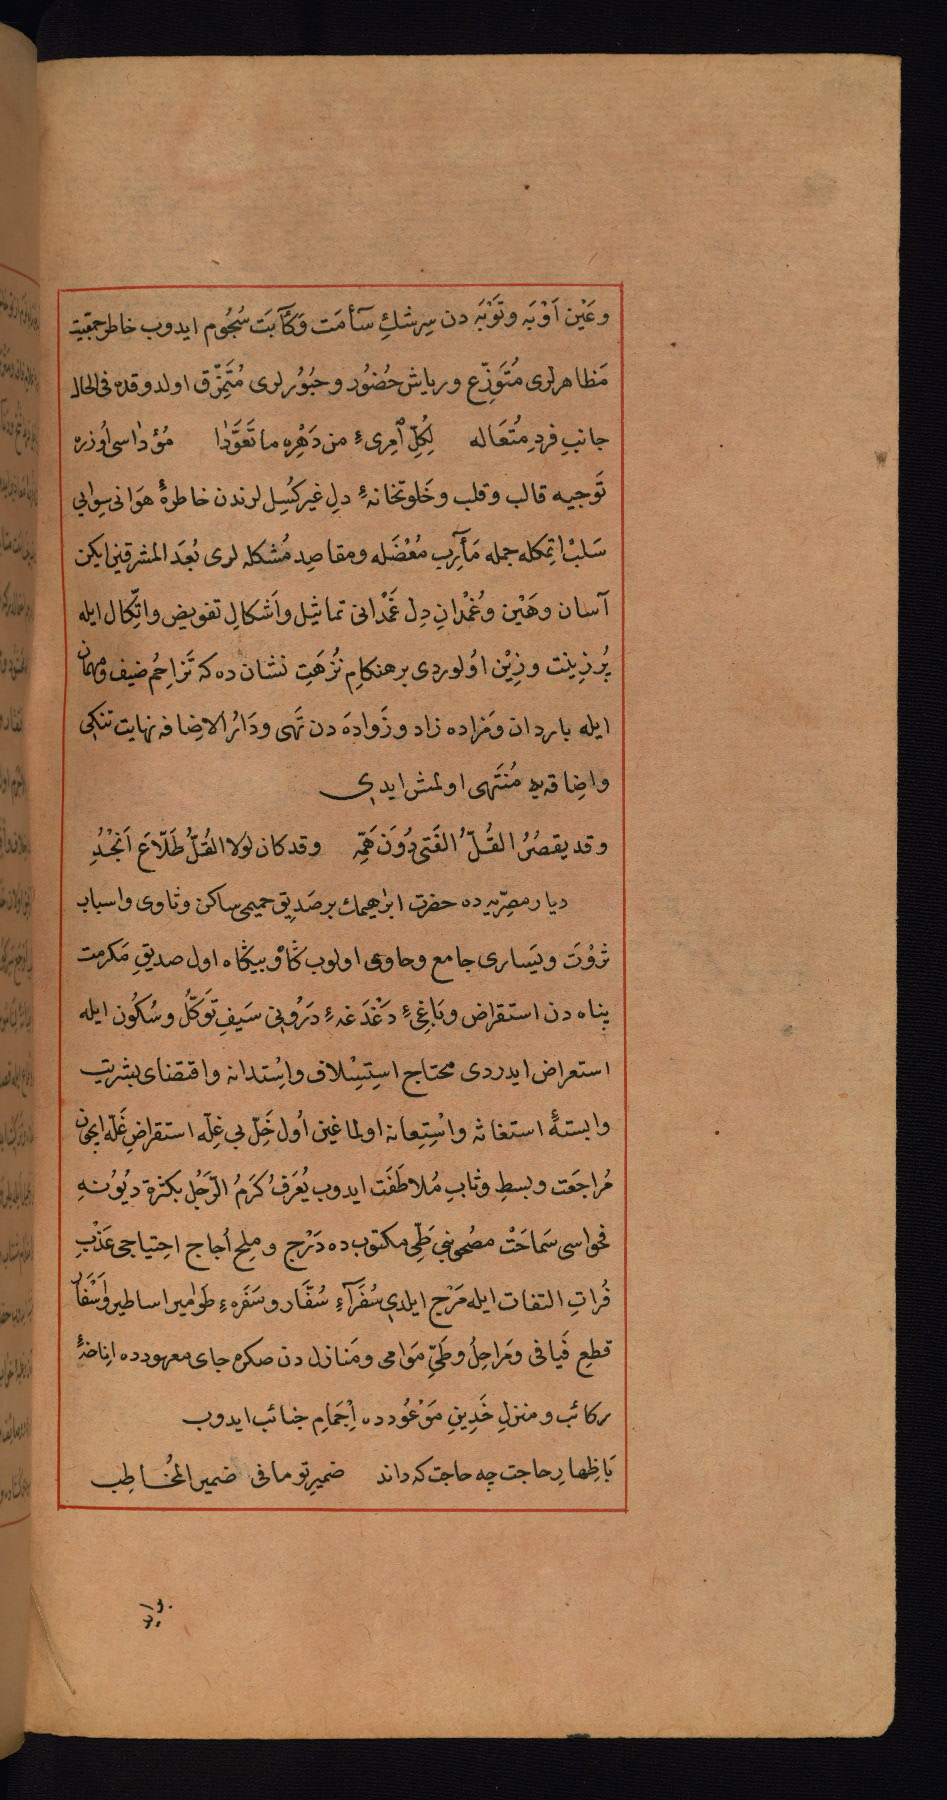 وعَيْن اَوْبَه وتَوْبَه دن سِرشكِ سآمَت وَكَآبَت سُجُوم ايدوب خاطر جمعيت
مَظاهرلرى مُتَوَزِّع ورياش حُضُور وحُبُورلرى مُتَمَزِّق اولدوقده فى الحال
جانبِ فردِ مُتَعَاله لِكُلِّ ٱمرِىءٍ من دَهْرِه ما تَعَوَّدا مُؤدٰاسى اُوزره
تَوجيه قالب وقلب وخَلوتخانهٔ دلِ غير كُسِل لرندن خاطرهٔ هوَانى سِوايى
سَلبْ اتمكله جمله مَآرِب مُعْضَله ومقاصِد مُشكله لرى بُعدَ المشرقين ايكن
آسان وهَيْن وغُمْدانِ دِل غَمْدانى تماثيل واَشكالِ تفويض واتِّكال ايله
پُر زِينت وزِيْن اوُلوردى برهنكامِ نُزهَتِ نشان ده كه تَزاحُم ضيف ومهمان
ايله باردان ومَزاده زاد وزَوادَه دن تَهى ودَارُ الاضافه نهايت تنكى
واضِاقه يه مُنتَهى اولمش ايدى
وقد يقصُرُ القُلُّ الفَتى دُوَن هَمِّهِ وقد كان لولا القُلُّ طَلّاعَ اَنجُدِ
ديار مصرّيه ده حضرت ابراهيمك بر صَدِيق حميمى ساكن وثاوى واسباب
ثرْوَت ويَسارى جامع وحاوى اولوب كَاْه وبيكاه اول صديقِ مَكرمت
پناه دن استقراض وبَاغىءِ دَغْدَغهءِ دَرُوُنىْ سَيفِ تَوَكُّل وسُكُون ايله
استعراض ايدردى محتاج اسِتِسْلاف واسْتدانه واقتضاى بشريت
وابستهٔ استغاثه واسْتِعانه اولماغين اُول خِلّ بى غِلّه استقراضِ غَلّه ايچون
مُراجَعت وبسطِ وثابِ مُلاطَفَت ايدوب يُعَرفُ كَرمُ الرَّجُل بكثرة دُيُونِهِ
فحواسى سَماحَتْ مصْحوبى طَىِّ مكتوب ده دَرْج وملح اُجاج احِتياجى عَذْبِ
فُراتِ التفات ايله مَزْج ايلدى سُفَرآءِ سُفّار وسَفَرهءِ طَوٰامير اساطير وَاَسْفَار
قطعِ فَيَافى ومَراحِلُ وطَىِّ مَوٰامى ومَنازل دن صكره جاى معهودده انِاخهٔ
ركائب ومنزلِ خَدِينِ مَوْعُودده اِجْمَامِ جنائب ايدوب
بَاِظهارِ حاجت چه حاجت كه داند ضميرِ تو ما فى ضميرِ المُخاطِب